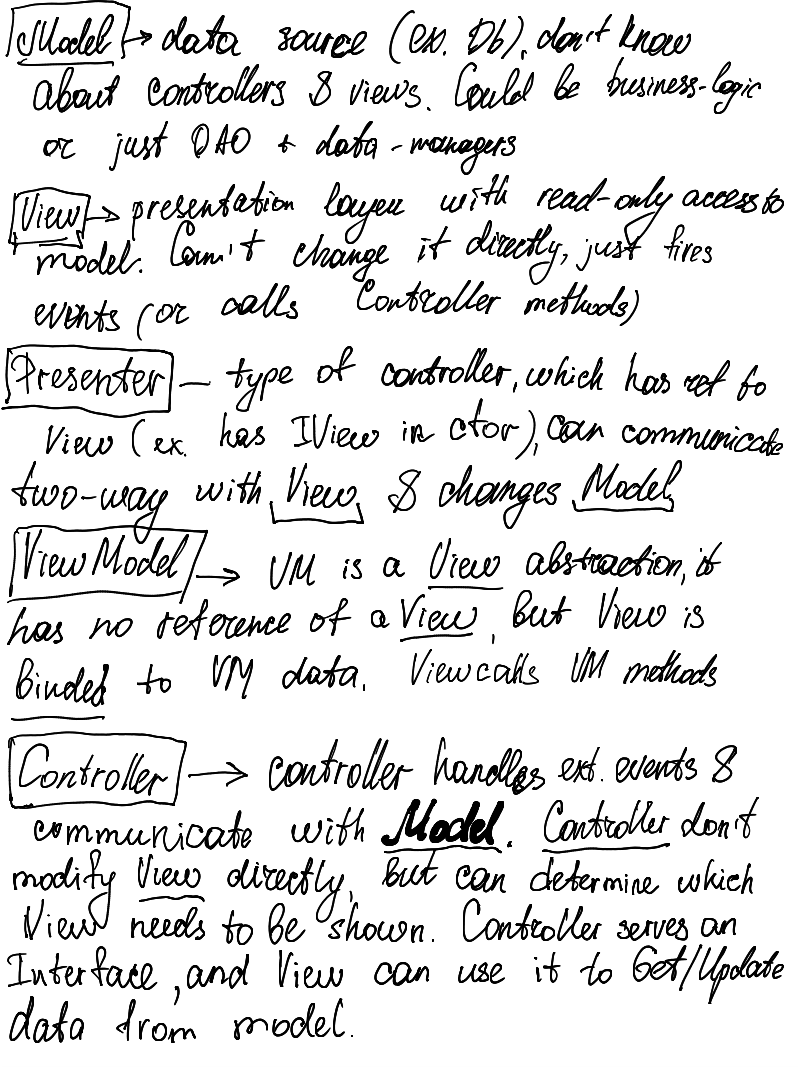 Model → data source (ex. Db), don't know
about controllers & views. Could be business-logic
or just DAO + data-managers
View → presentation layer with read-only access to
model. Can't change it directly, just fires
events (or calls Controller methods)
Presenter — type of controller, which has ref to
View (ex. has IView in ctor), can communicate
two-way with View & changes Model
ViewModel → VM is a View abstraction, it
has no reference of a View, but View is
binded to VM data. View calls VM methods
Controller → controller handles ext. events &
communicate with Model. Controller don't
modify View directly, but can determine which
View needs to be shown. Controller serves an
Interface, and View can use it to Get/Update
data from model.